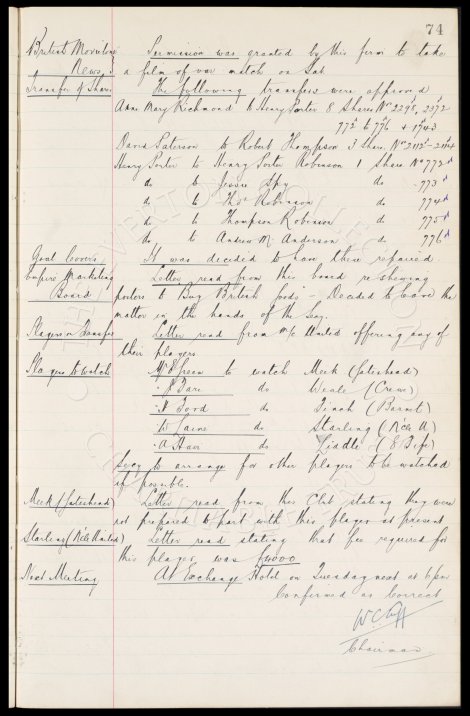 74
British Movietone Permission was granted by this firm to take
News a film of our match on Sat.
Transfer of Shares The following transfers were approved
Ann Mary Richmond to Henry Porter 8 Shares Nos 2298, 2372
772 to 776 & 1743
David Paterson to Robert Thompson 3 Share. Nos 2112 - 2114
Henry Porter to Henry Porter Robinson 1 Share No 772d
do to Jessie do 773d
do to Thos Robinson do 774d
do to Thompson Robinson do 775d
do to Andrew M. Anderson do 776d
Goal Covers It was decided to have these repaired.
Empire Marketing Letter read from this board re shewing
Board posters to Buy British foods - Decided to leave the
matter in the hands of the Secy.
Players on Transfer Letter read from M/c United offering any of
their players
Players to watch Mr Green to watch Meek (Gateshead)
" Bare do Weale (Crewe)
" Ford do Finch (Barnet)
" do Starling (N'cle U)
" A do Liddle (E Fife)
Secy to arrange for other players to be watched
if possible.
Meek (Gateshead) Letter read from this Club stating they were
not prepared to part with this player at present
Starling (N'cle United) Letter read stating that fee required for
this player was £4000
Next Meeting At Exchange Hotel on Tuesday next at 6pm
Confirmed as Correct
W.C. Cuff
Chairman